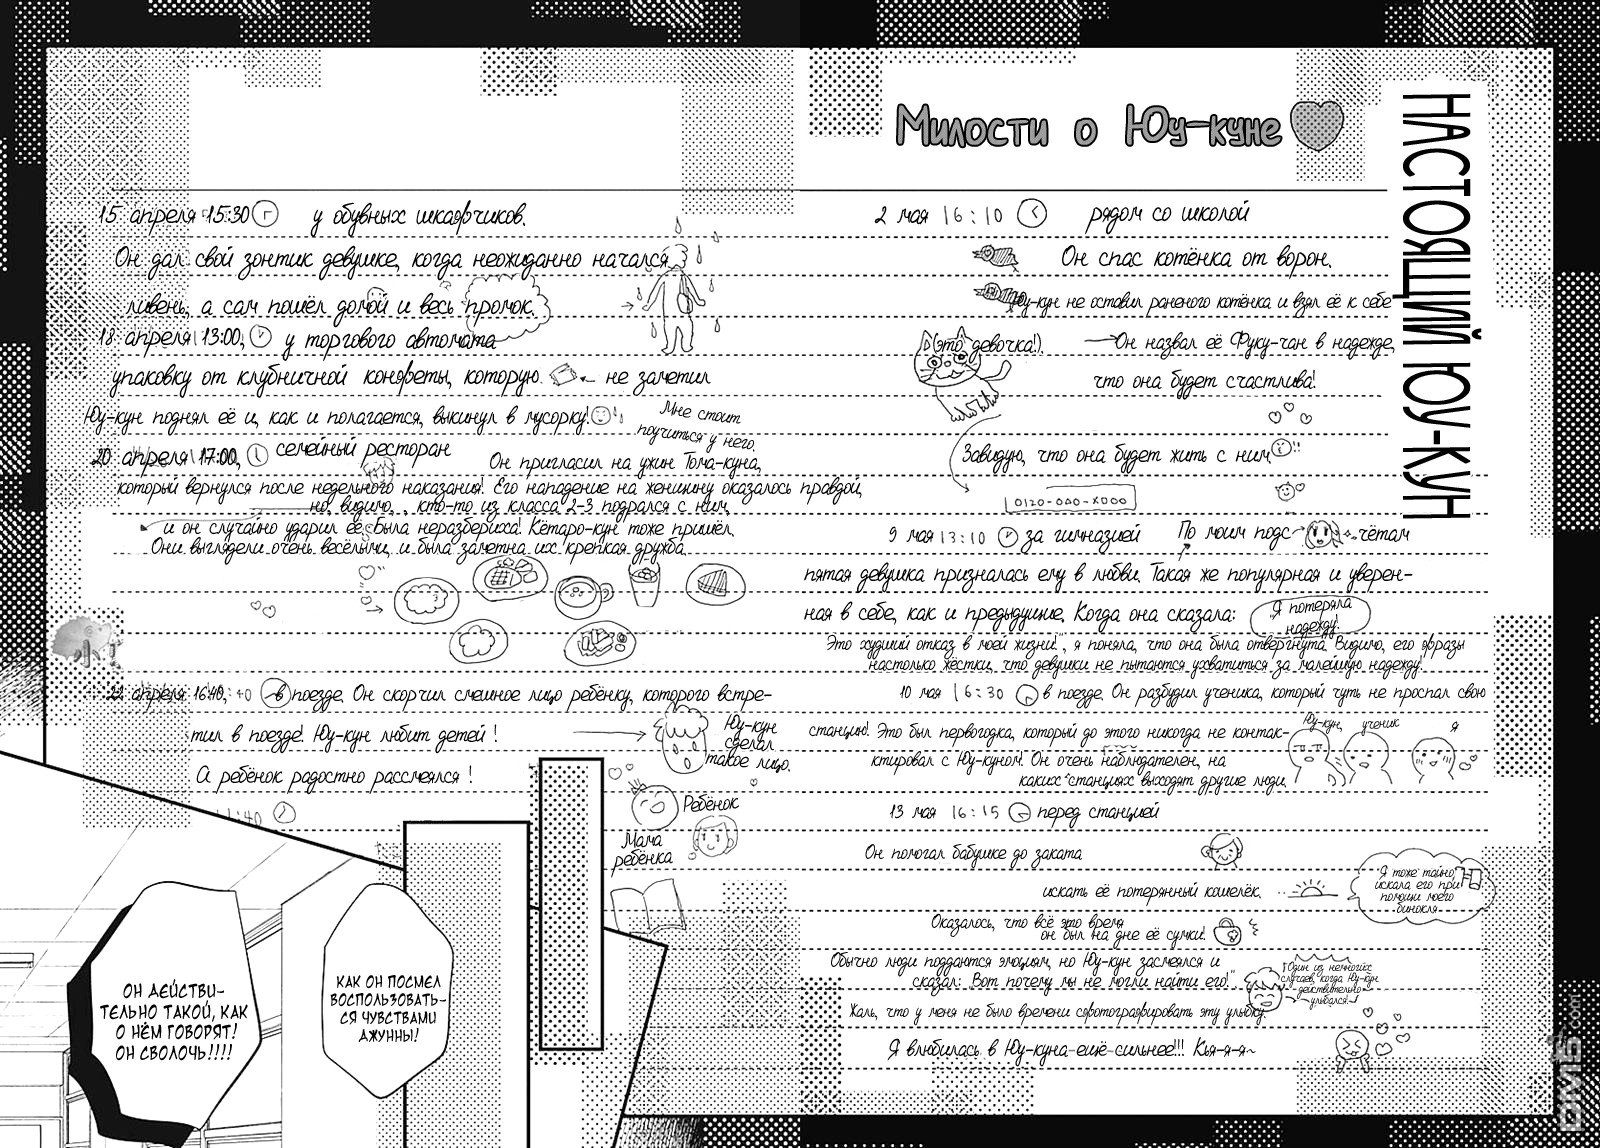 НАСТОЯЩИЙ ЮУ-КУН
Милости о Юу-куне
2 мая 16:10 рядом со школой
Он спас котёнка от ворон.
Юу-кун не оставил раненого котёнка и взял её к себе
(это девочка!).
Он назвал её Фуку-чан в надежде,
что она будет счастлива!
Завидую, что она будет жить с ним
0120-000-X000
9 мая 13:10 за гимназией
По моим подсчётам
пятая девушка призналась ему в любви. Такая же популярная и уверен-
ная в себе, как и предыдущие. Когда она сказала:
"Я потеряла
надежду!
Это худший отказ в моей жизни!", я поняла, что она была отвергнута. Видимо, его фразы
настолько жёстки, что девушки не пытаются ухватиться за малейшую надежду!
10 мая 16:30 в поезде. Он разбудил ученика, который чуть не проспал свою
станцию! Это был первогодка, который до этого никогда не контак-
ктировал с Юу-куном! Он очень наблюдателен, на
каких станциях выходят другие люди.
Юу-кун,
ученик
я
13 мая 16:15 перед станцией
Он помогал бабушке до заката
искать её потерянный кошелёк.
Я тоже тайно
искала его при
помощи моего
бинокля
Оказалось, что всё это время
он был на дне её сумки!
Обычно люди поддаются эмоциям, но Юу-кун засмеялся и
сказал: Вот почему мы не могли найти его!"
Один из немногих
случаев, когда Юу-кун
действительно
улыбался!
Жаль, что у меня не было времени сфотографировать эту улыбку.
Я влюбилась в Юу-куна ещё сильнее!!! Кья-я-я~
15 апреля 15:30 у обувных шкафчиков.
Он дал свой зонтик девушке, когда неожиданно начался
ливень, а сам пошёл домой и весь промок.
18 апреля 13:00, у торгового автомата
упаковку от клубничной конфеты, которую не заметил
Юу-кун поднял её и, как и полагается, выкинул в мусорку!
Мне стоит
поучиться у него.
20 апреля 17:00, семейный ресторан
Он пригласил на ужин Тома-куна,
который вернулся после недельного наказания! Его нападение на женщину оказалось правдой,
но, видимо, , кто-то из класса 2-3 подрался с ним,
и он случайно ударил её. Была неразбериха! Кётаро-кун тоже пришёл.
Они выглядели очень весёлыми, и была заметна их крепкая дружба.
22 апреля 16:40, в поезде. Он скорчил смешное лицо ребёнку, которого встре-
тил в поезде! Юу-кун любит детей !
Юу-кун
сделал
такое лицо.
А ребёнок радостно рассмеялся !
Ребёнок
Мама
ребёнка
КАК ОН ПОСМЕЛ
ВОСПОЛЬЗОВАТЬ-
СЯ ЧУВСТВАМИ
ДЖУННЫ!
ОН ДЕЙСТВИ-
ТЕЛЬНО ТАКОЙ, КАК
О НЁМ ГОВОРЯТ!
ОН СВОЛОЧЬ!!!!